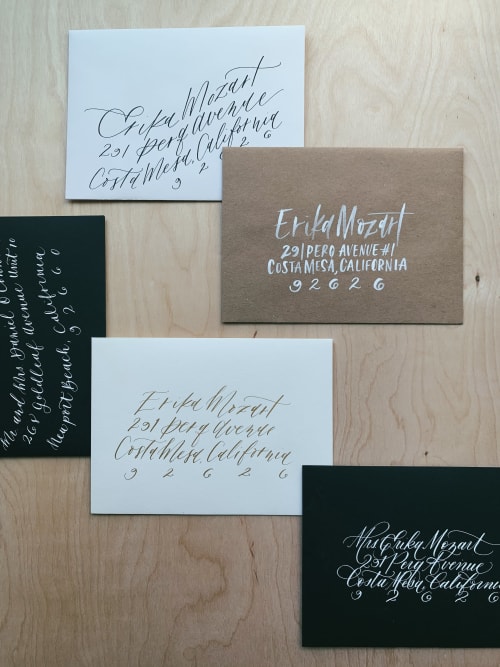 Erika Mozart
291 Perq Avenue
Costa Mesa, California
92626
Erika Mozart
291 PERQ AVENUE #1
COSTA MESA, CALIFORNIA
92626
Mr and Mrs Daniel
Goldleaf Avenue Unit
Newport Beach, California
92660
Erika Mozart
291 Perq Avenue
Costa Mesa, California
92626
Mrs Erika Mozart
291 Avenue
Costa Mesa, California
92626